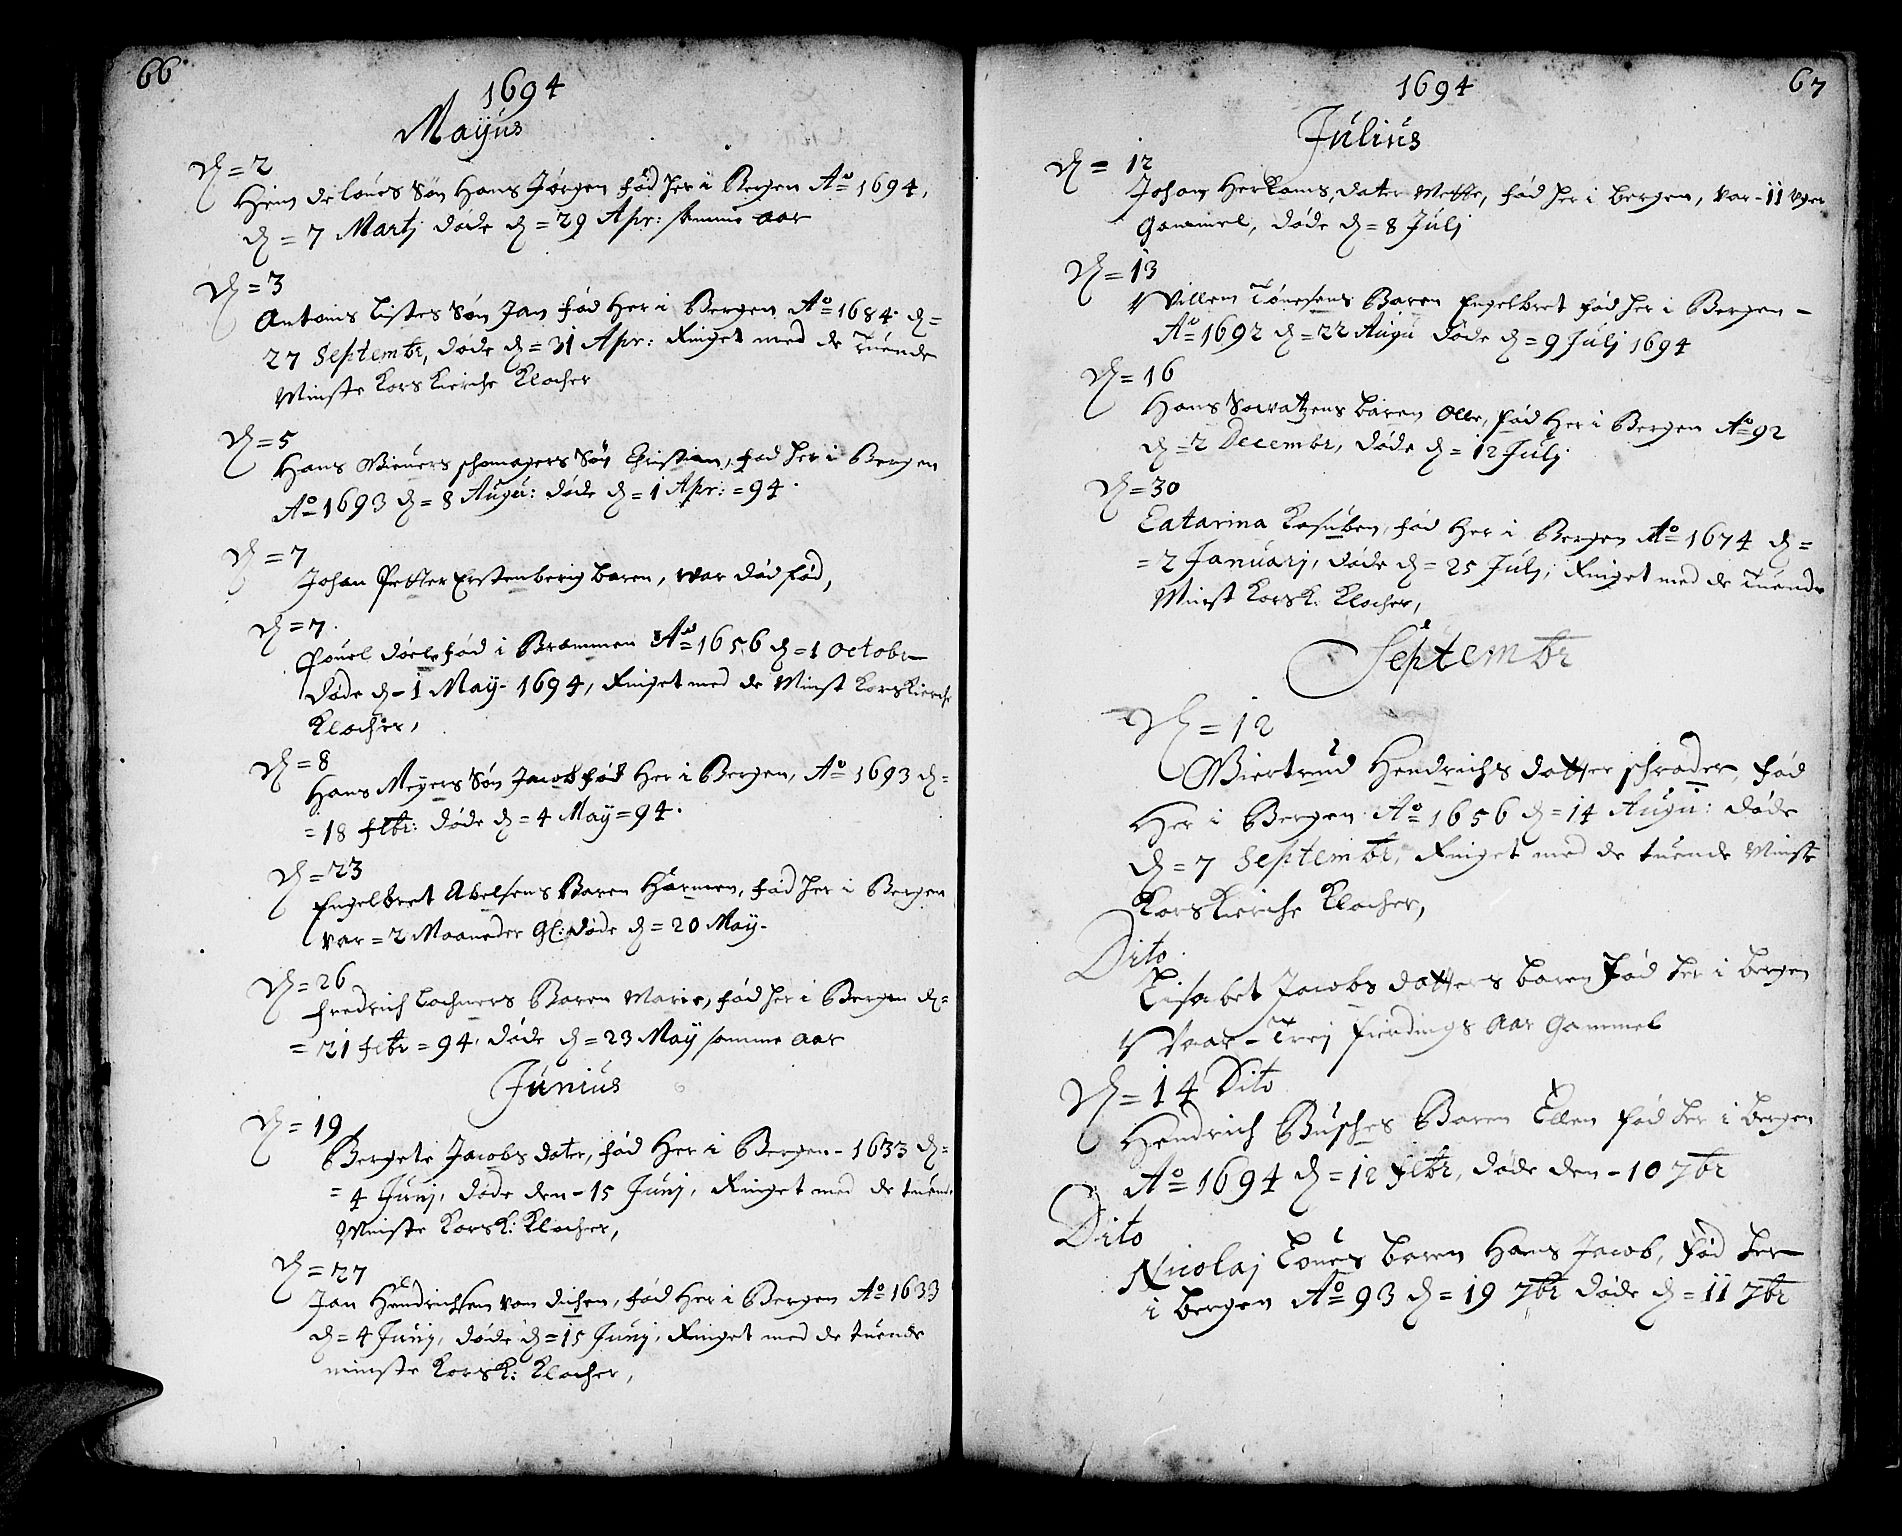 66
1694
Mayus
D = 2
Hein de Loues Søn Hans Jørgen fød her i Bergen Aº 1694,
D = 7 Martj døde D = 29 Apr: samme aar
D = 3
Antonis Listes Søn Jan fød Her i Bergen Aº 1684 D =
27 Septembr, døde D = 31 Apr: Ringet med de Tuende
Minste Korskierche Klocher
D = 5
Hans schomagers Søn Christian, fød her i Bergen
Aº 1693 D = 8 Augu: døde D = 1 Apr: = 94.
D = 7
Johan Petter Erstenberig baren, war død fød,
D = 7.
Pouel fød i Brammen Aº 1656 D = 1 Octobr
døde D = 1 May. 1694, Ringet med de Minst Korskierche
Klocher,
D = 8
Hans Meyers Søn Jacob fød Her i Bergen, Aº 1693 D =
= 18 febr: døde D = 4 May = 94.
D = 23
Engelbret Abelsens Baren Harmen, fød her i Bergen
var = 2 Maaneder Gl: døde D = 20 May.
D = 26
fredrich Lochners Baren Marie, fød her i Bergen D =
= 21 febr = 94, døde D = 23 May samme aar
Junius
D = 19
Bergete Jacobs dater, fød Her i Bergen - 1633 D =
= 4 Junj, døde den - 15 Junj, Ringet med de tuende
Minste Korsk: Klocher,
D = 27
Jan Hendrichsen von dichen, fød Her i Bergen Aº 1633
D = 4 Junj, døde D = 15 Junj, Ringet med de tuende
minste Korsk: Klocher,
67
1694
Julius
D = 12
Johan Herkams, dater Mette, fød her i bergen, var - 11 vger
Gammel, døde D = 8 Julj
D = 13
Willem Tønesens Baren Engelbret fød her i Bergen -
Aº 1692 D = 22 Augu døde D = 9 Julj 1694
D = 16
Hans baren Olle, fød Her i Bergen Aº 92
D = 2 Decembr, døde D = 12 Julj
D = 30
Catarina Kasuben, fød Her i Bergen Aº 1674 D =
= 2 Januarj, døde D = 25 Julj, Ringet med de Tuende
Minst Korsk: Klocher,
Septembr
D = 12
Giertrud Hendrichs datter schrøder, fød
Her i Bergen Aº 1656 D = 14 Augu: døde
D = 7 Septembr, Ringet med de tuende Minste
Korskierche Klocher,
Dito
Lisabet Jacobs datters baren fød her i bergen
Waar - Trej fierdings Aar Gammel
D = 14 Dito
Hendrich Busches Baren Ellen fød her i bergen
Aº 1694 D = 12 febr, døde den - 10 7br
Dito
Nicolaj Loues baren Hans Jacob, fød her
i bergen Aº 93 D = 19 7br døde D = 11 7br